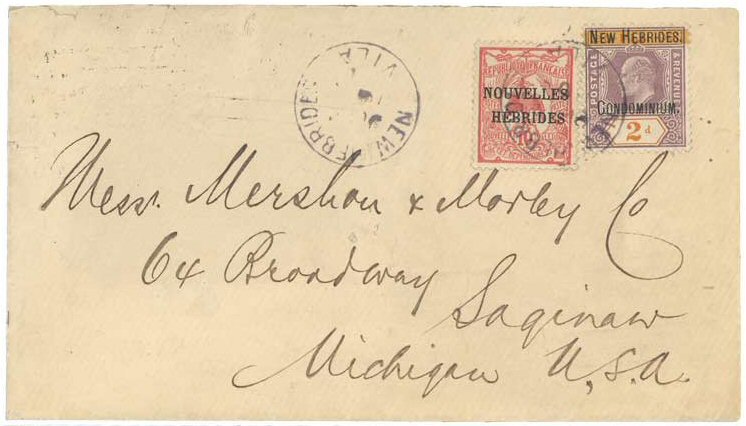 NEW HEBRIDES.
POSTAGE & REVENUE
CONDOMINIUM.
2d
NOUVELLES
HÉBRIDES
NEW HEBRIDES
VILA
Mess. Mershon & Morley Co
64 Broadway
Saginaw
Michigan U.S.A.